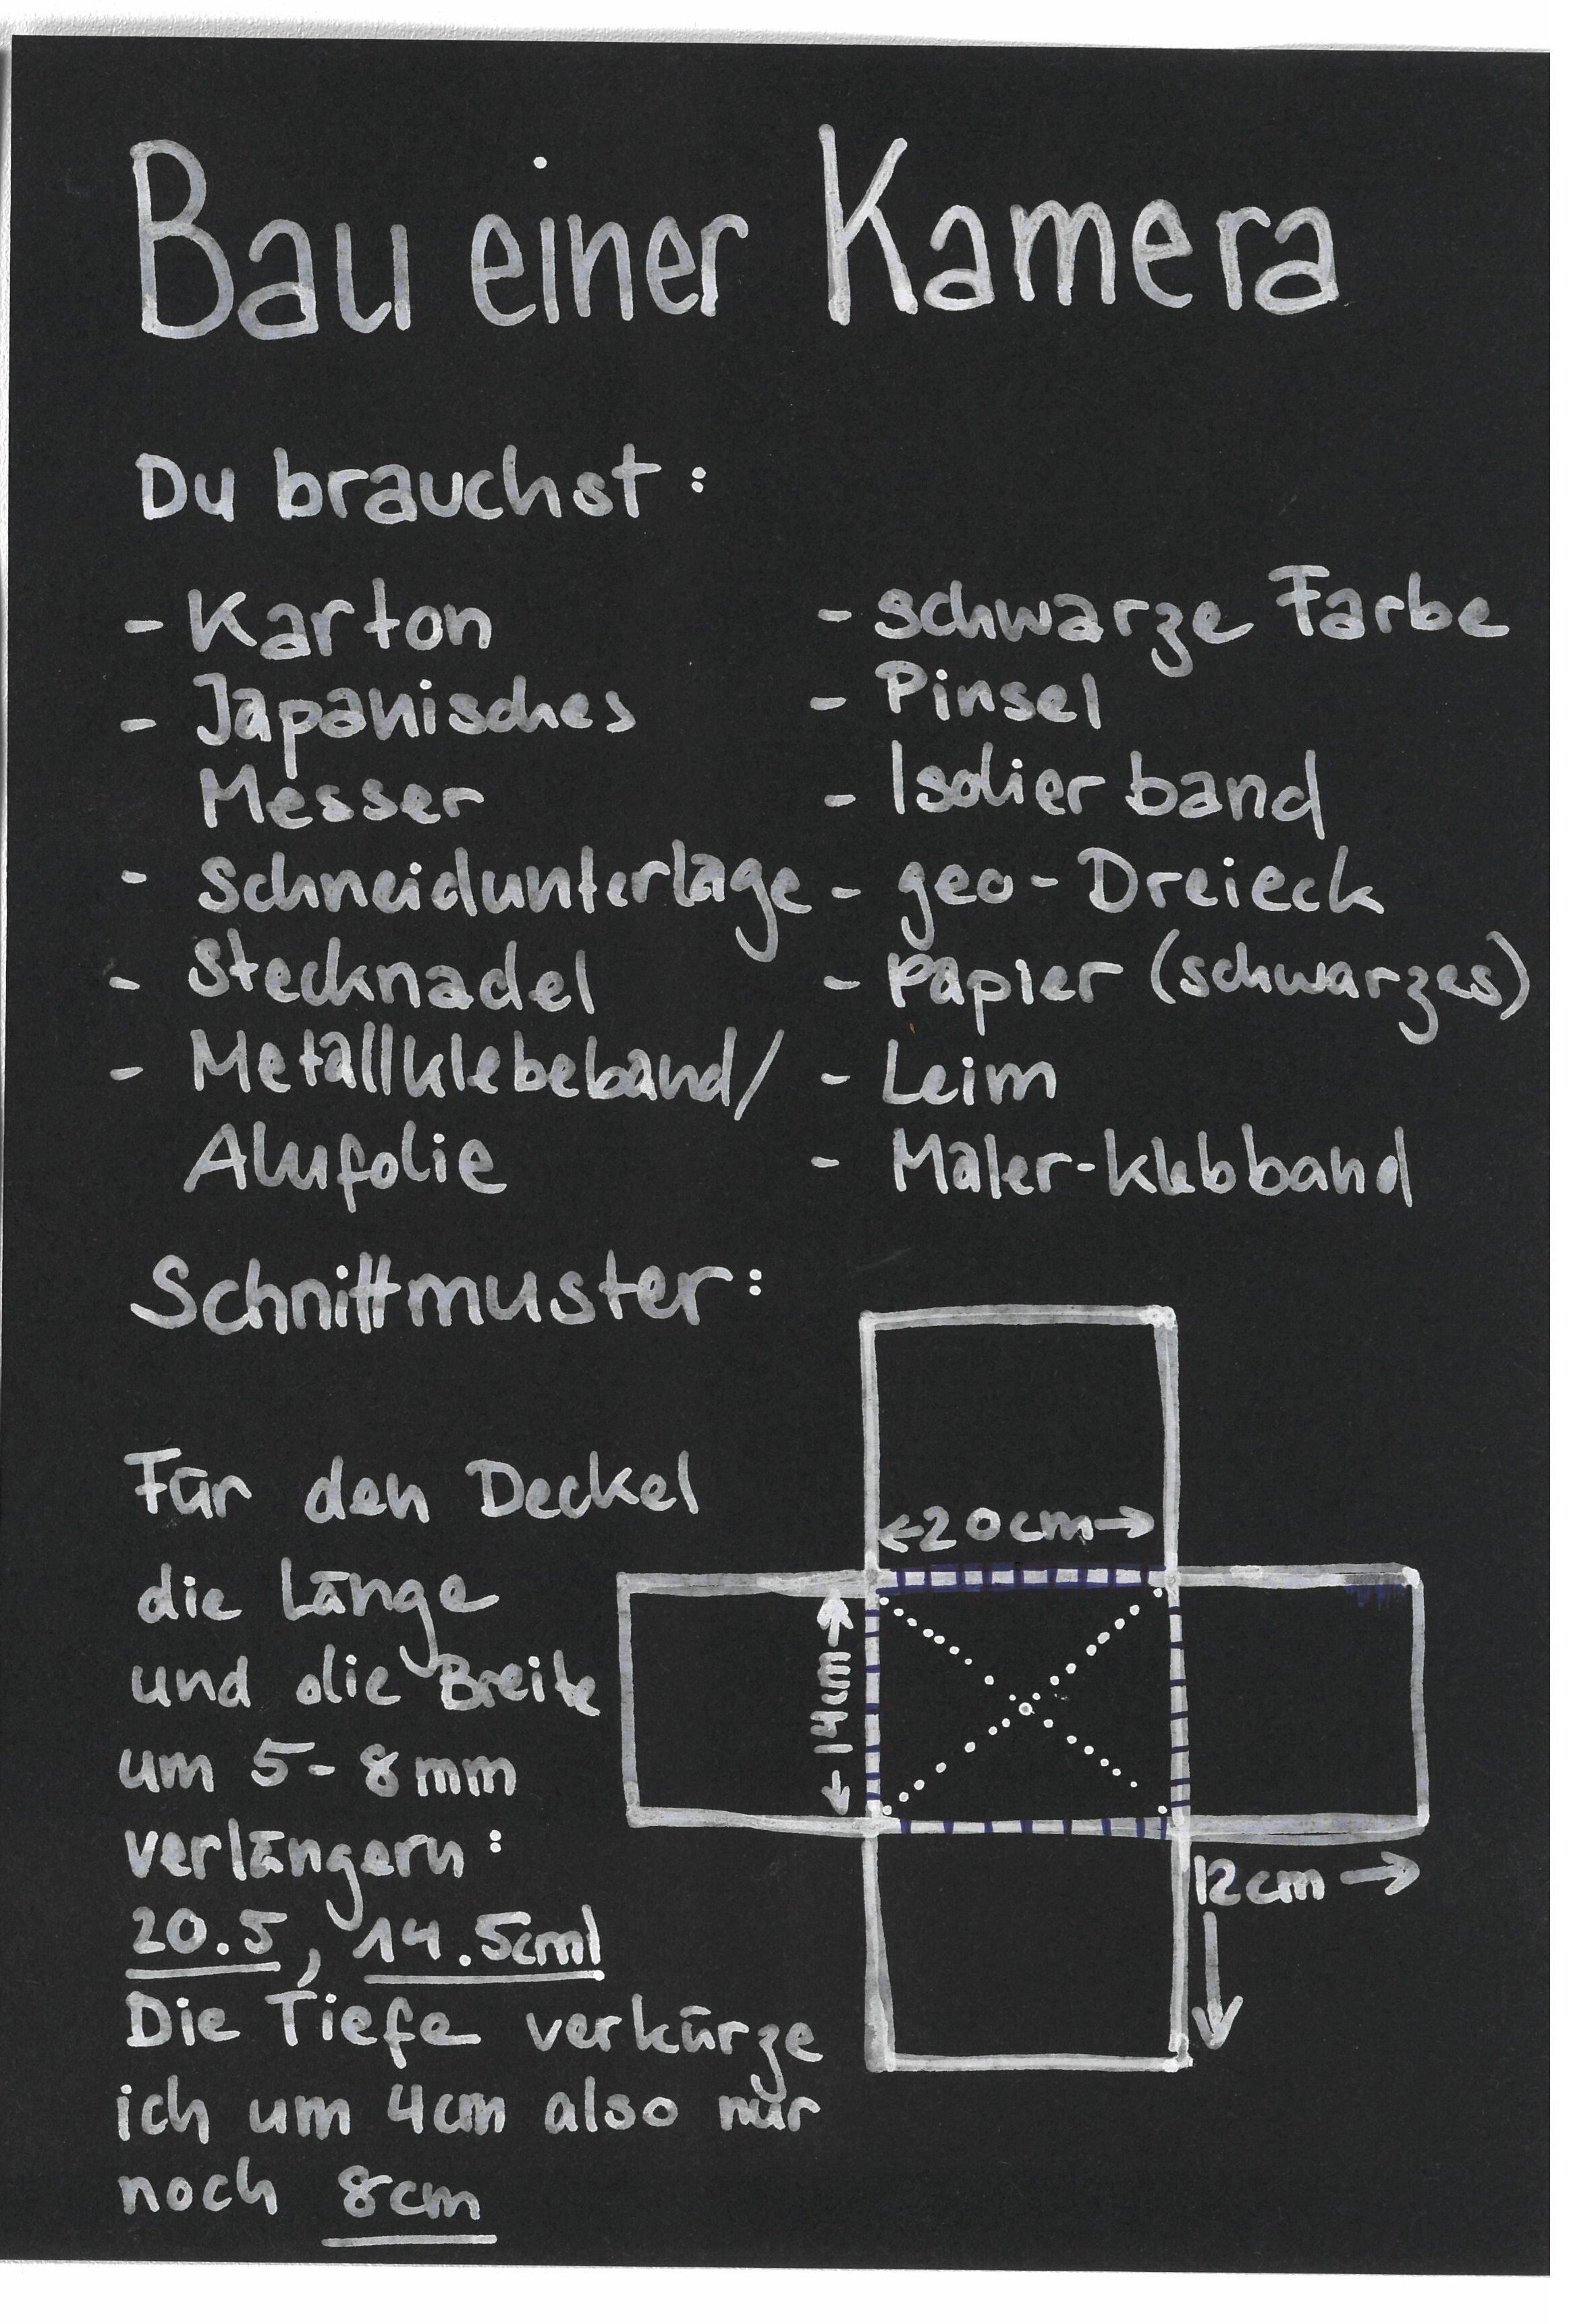 Bau einer Kamera
Du brauchst:
- Karton
- Japanisches
Messer
- Schneidunterlage
- Stecknadel
- Metallklebeband/
Alufolie
- schwarze Farbe
- Pinsel
- Isolierband
- geo-Dreieck
- Papier (schwarzes)
- Leim
- Maler-klebband
Schnittmuster:
Für den Deckel
die Länge
und die Breite
um 5-8mm
verlängern:
20.5, 14.5cm!
Die Tiefe verkürze
ich um 4cm also nur
noch 8cm
←20cm→
←14cm→
12cm →